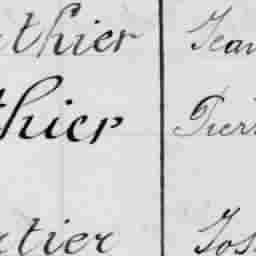 thier Jean
thier Pierr
rtier Jos